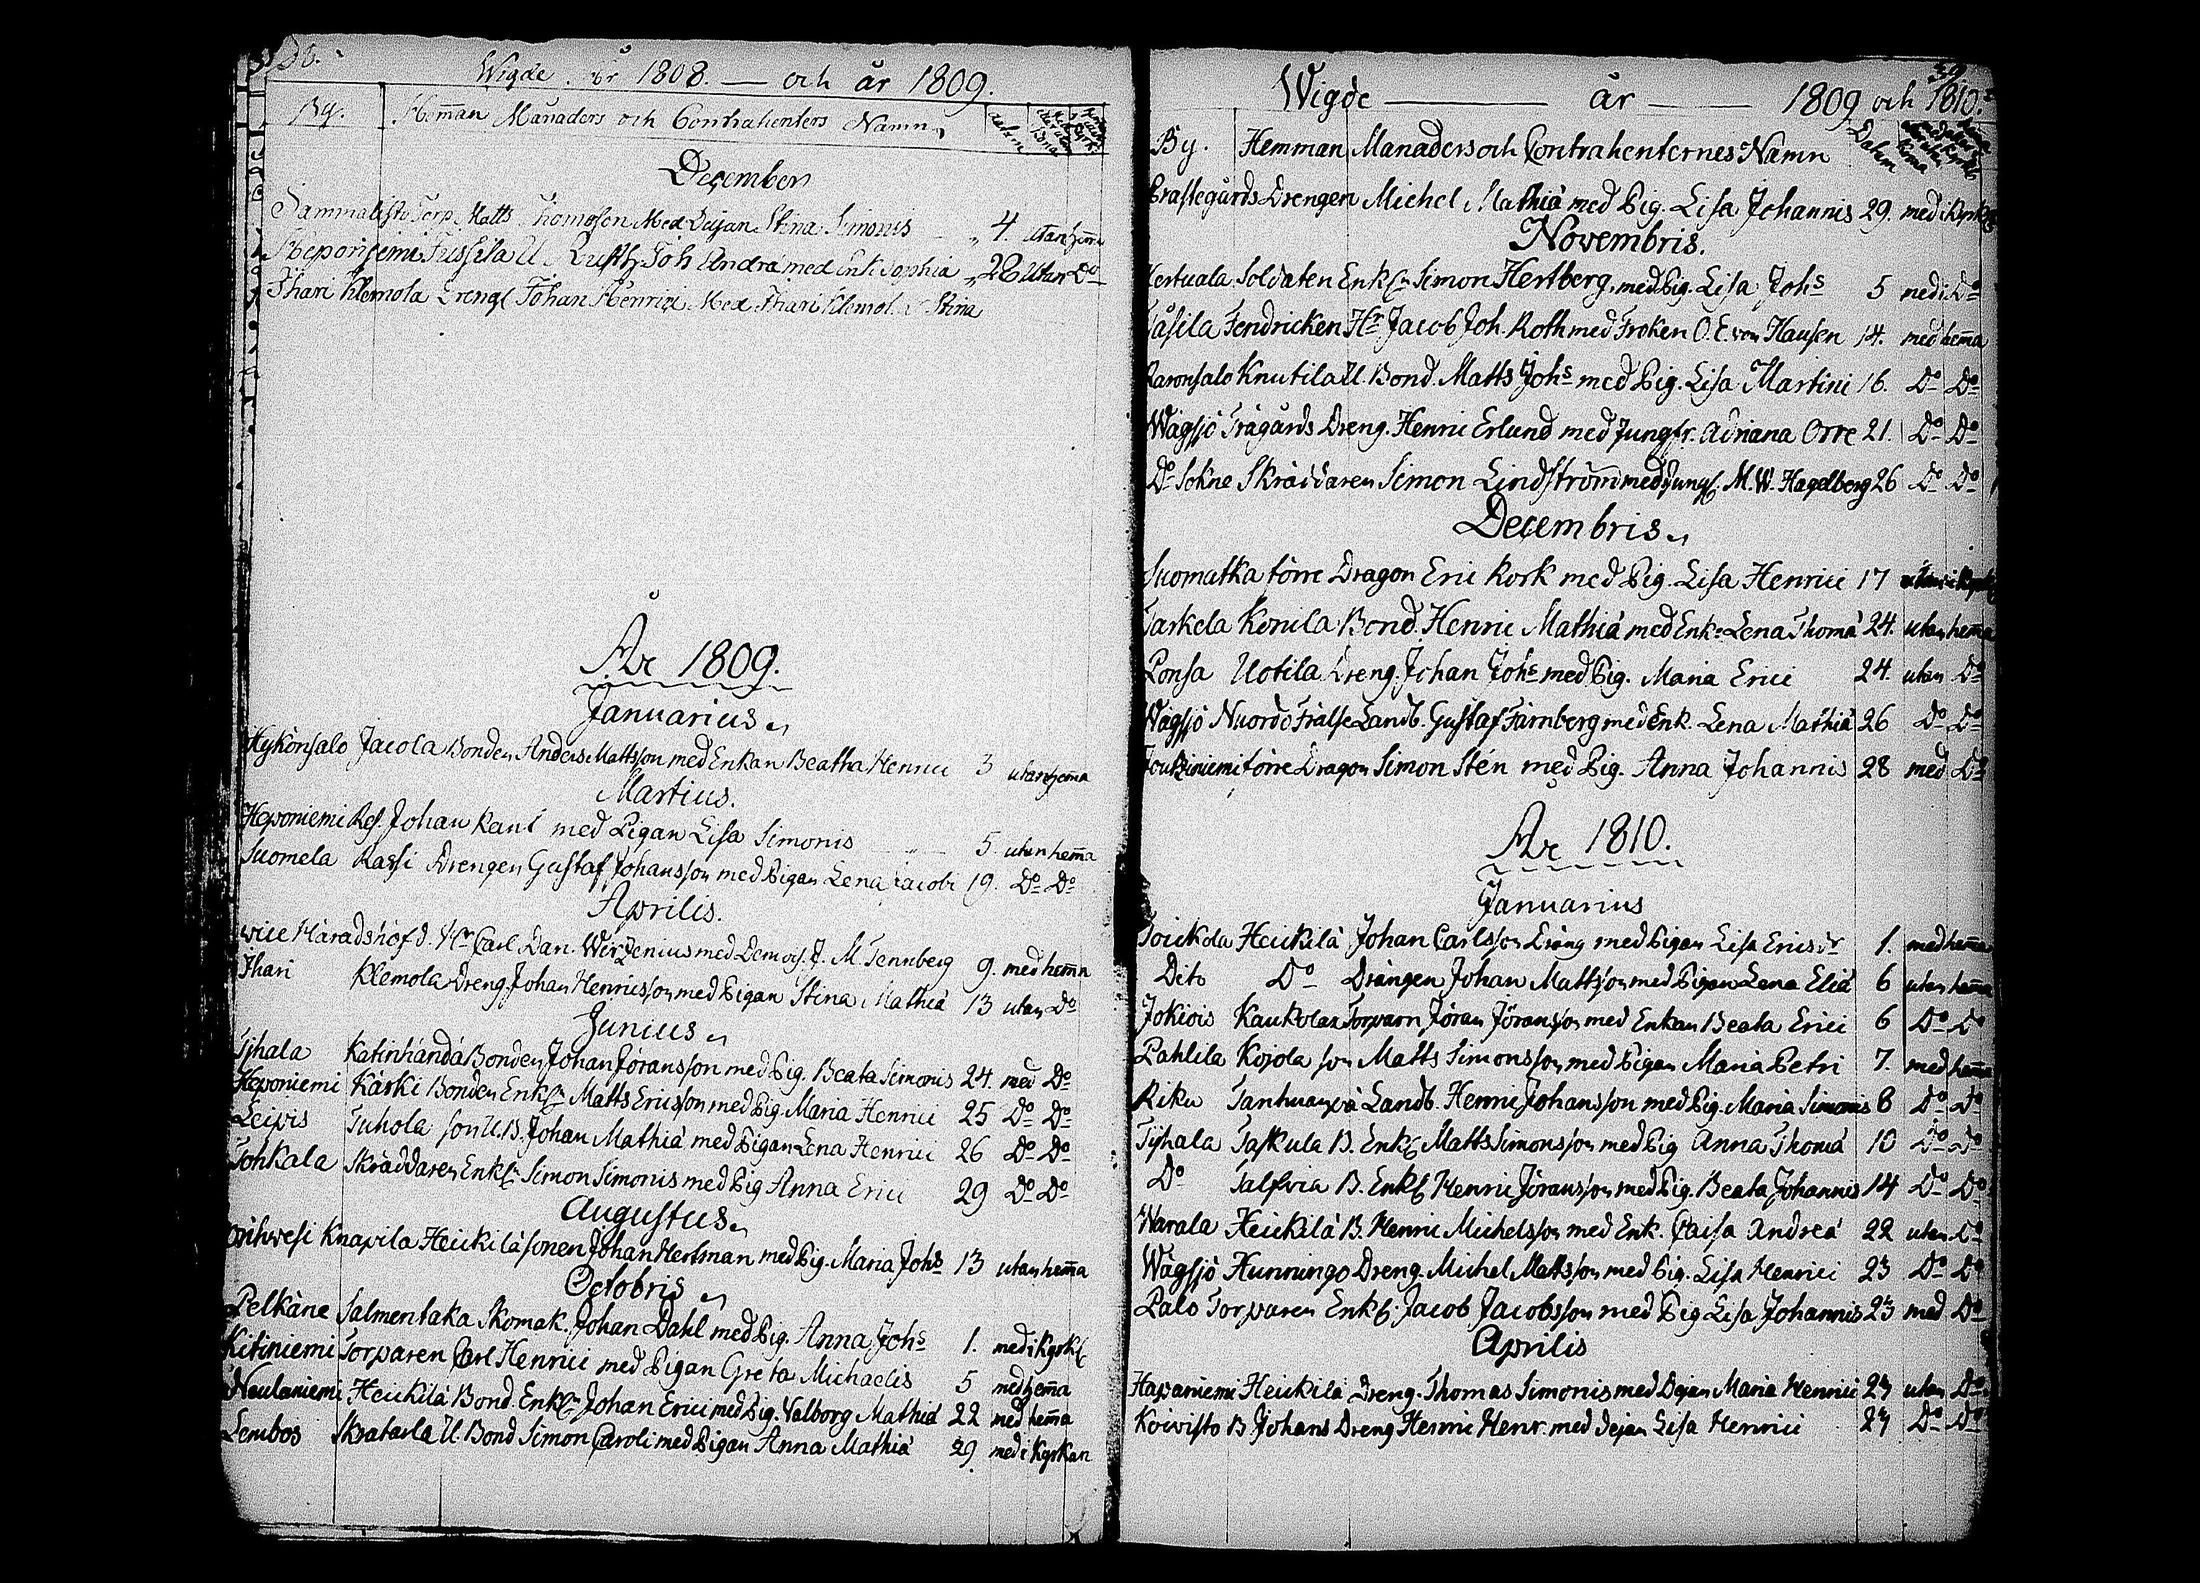 38.
Wigde. år 1808. — och år 1809.
By. Hem̄an Månaders och Contrahenters Namn
December
Sammalisto Torp. Matts Thomoson Med Dejan Stina Simonis 4. utan hem̄a
Heponiemi Jussila U. Rusth. Joh Andrä med Enk Sophia 28 Utan D:o
Ihari Klemola Dreng Johan Henrici Med Ihari Klemola Stina
År 1809.
Januarius
Hykönsalo Jacola Bonden Anders Mattsson med Enkan Beatha Henrici 3 utan hem̄a
Martius.
Heponiemi Ref. Johan Kant med Pigan Lisa Simonis 5. utan hem̄a
Suomela Rassi Drengen Gustaf Johansson med Pigan Lena Jacobi 19. D:o D:o
Aprilis.
wice Häradshöfd. H:r Carl Dan. Wirzenius med Demois. J. M. Tennberg 9. med hem̄a
Ihari Klemola Dreng Johan Henricsson med Pigan Stina Mathiä 13 utan D:o
Junius
Tyhala Katinhändä Bonden Johan Jöransson med Pig. Beata Simonis 24. med D:o
Heponiemi Kärki Bonden Enkl. Matts Ericsson med Pig. Maria Henrici 25 D:o D:o
Leipis Tuhola son U.B. Johan Mathiä med Pigan Lena Henrici 26 D:o D:o
Tohkala Skräddaren Enkl. Simon Simonis med Pig Anna Erici 29 D:o D:o
Augustus
Knapila Heickilä sonen Johan Hertman med Pig. Maria Joh:s 13 utan hem̄a
Octobris
Pelkäne Salmentaka Skomak. Johan Dahl med Pig. Anna Joh:s 1. med i Kyrk.
Kitiniemi Torparen Carl Henrici med Pigan Greta Michaelis 5 med hem̄a
Neulaniemi Heickilä Bond. Enkl. Johan Erici med Pig. Valborg Mathiä 22 med hem̄a
Lembos Skratarla U. Bond Simon Caroli med Pigan Anna Mathiä 29 med i Kyrkan
39
Wigde — år — 1809 och 1810.
By. Hemman Manaders och Contrahenternes Namn Datum
Prastegårds Drengen Michel Mathiä med Pig. Lisa Johannis 29. med i Kyrk
Novembris.
Hertuala Soldaten Enkl. Simon Hertberg med Pig. Lisa Joh:s 5 med i D:o
Fendricken H:r Jacob Joh. Roth med Froken O. E. von Hausen 14. med hem̄a
Paronsalo Knutila U. Bond. Matts Joh:s med Pig. Lisa Martini 16. D:o D:o
Wägsjö Trägårds Dreng. Henric Erlund med Jungfr. Adriana Orre 21. D:o D:o
D:o Sokne Skräddaren Simon Lindström med Jungf. M. W. Hagelberg 26 D:o D:o
Decembris
Suomatka förre Dragon Eric Kork med Pig. Lisa Henrici 17
Sarkela Konila Bond. Henric Mathiä med Enk: Lena Thomä 24. utan hem̄a
Ponsa Uotila Dreng. Johan Joh:s med Pig. Maria Erici 24. utan D:o
Wägsjö Nuordo Frälse Landb. Gustaf Färnberg med Enk. Lena Mathiä 26 D:o D:o
förre Dragon Simon Stén med Pig. Anna Johannis 28 med D:o
År 1810.
Januarius
Toickola Heickilä Johan Carlsson Dräng med Pigan Lisa Ericsdr 1. med hem̄a
Dito D:o Drängen Johan Mattsson med Pigan Lena Eliä 6 utan hem̄a
Jokiois Kaukolax Torparn Jöran Jöransson med Enkan Beata Erici 6 D:o D:o
Pahlila Kojola son Matts Simonsson med Pigan Maria Petri 7. med hem̄a
Riku Tanhuanpä Landb. Henric Johansson med Pig. Maria Simonis 8 D:o D:o
Tyhala Taskula B. Enkl. Matts Simonsson med Pig Anna Thomä 10 D:o D:o
D:o Talsvia B. Enkl. Henric Jöransson med Pig. Beata Johannis 14 D:o D:o
Warala Heickilä B. Henric Michelsson med Enk. Caisa Andreä 22 utan D:o
Wägsjö Hunningo Dreng. Michel Mattsson med Pig. Lisa Henrici 23 D:o D:o
Palo Torparen Enkl. Jacob Jacobsson med Pig Lisa Johannis 23 med D:o
Aprilis
Hapaniemi Heickilä Dreng. Thomas Simonis med Dejan Maria Henrici 27 utan D:o
Koivisto B Johans Dreng Henric Henr. med Dejan Lisa Henrici 27 D:o D:o